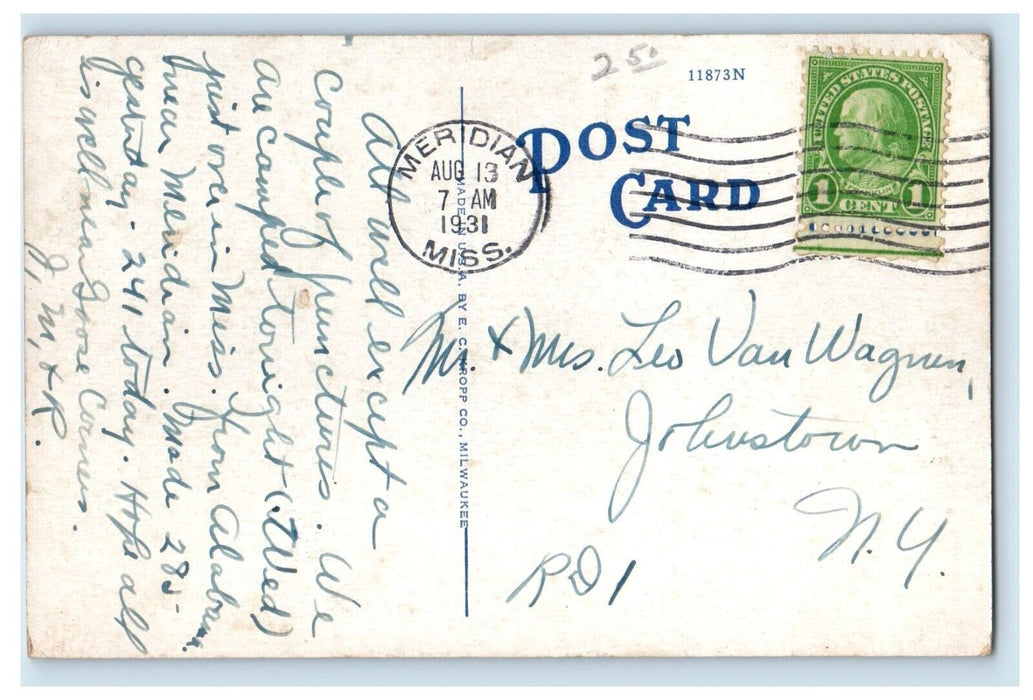 2 50
11873N
POST
CARD
UNITED STATES POSTAGE
FRANKLIN
1 CENT 1
MERIDIAN
AUG 13
7 AM
1931
MISS.
MADE IN U.S.A. BY E. C. KROPP CO., MILWAUKEE
All well except a
couple of punctures. We
are camped tonight (Wed)
just over in Miss. from Alabama
near Meridian. Made 285
yesterday - 241 today. Hope all
is well near Goose Corners.
J, M, & R.
Mr. & Mrs. Leo Van Wagnen,
Johnstown
N.Y.
RD 1